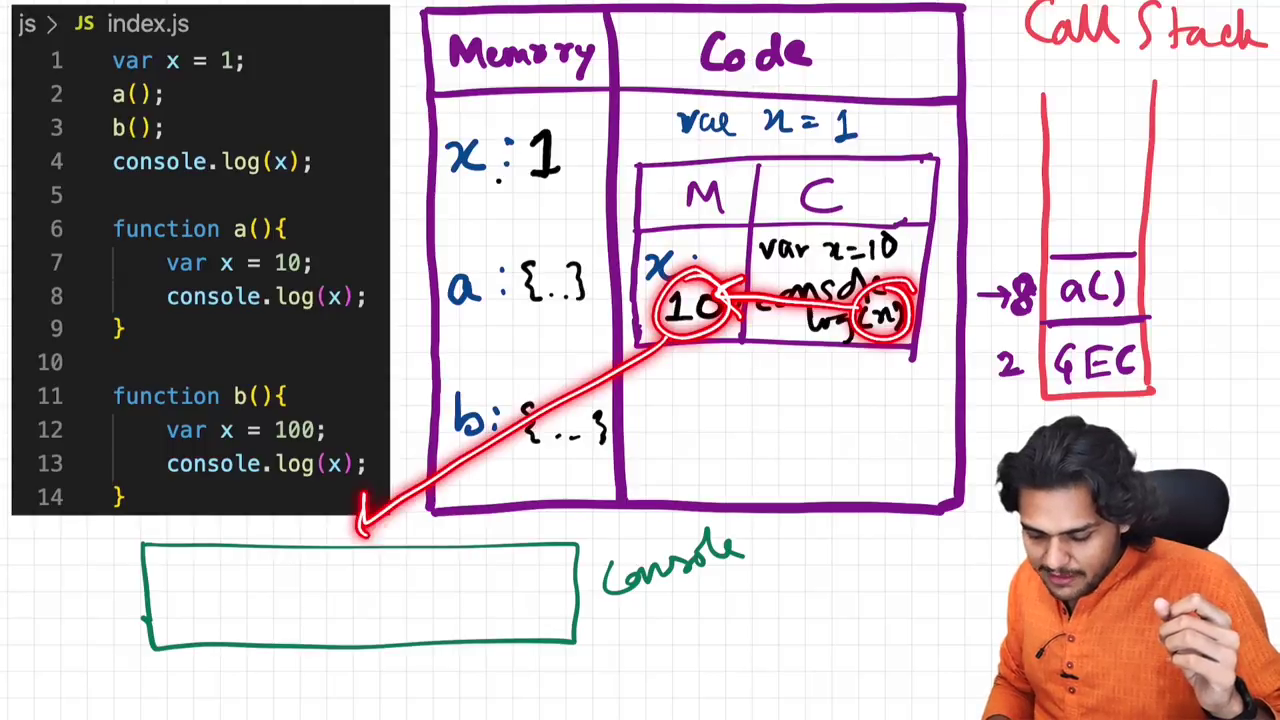 js > JS index.js
1 var x = 1;
2 a();
3 b();
4 console.log(x);
5
6 function a(){
7 var x = 10;
8 console.log(x);
9 }
10
11 function b(){
12 var x = 100;
13 console.log(x);
14 }
Memory
Code
x : 1
a : {..}
b : {..}
var x = 1
M
C
x :
10
var x=10
console
log(x)
Call Stack
→8
a()
2
GEC
Console